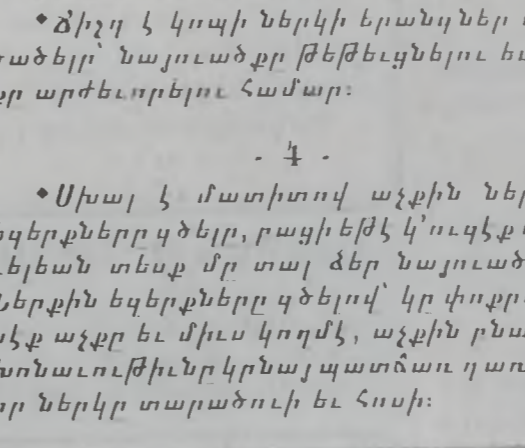 •Ճիշդ է կոպի ներկի երանգներ
ածելը՝ նայուածքը թեթեւցնելու եւ
քը արժեւորելու համար։
- 4 -
•Սխալ է մատիտով աչքին ներ
եզերքները գծելը, բացի եթէ կ՚ուզէք
ելեան տեսք մը տալ ձեր նայուած
ներքին եզերքները գծելով՝ կը փոքր
էք աչքը եւ միւս կողմէ, աչքին բնա
խոնաւութիւնը կրնայ պատճառ դառ
ներկը տարածուի եւ հոսի։